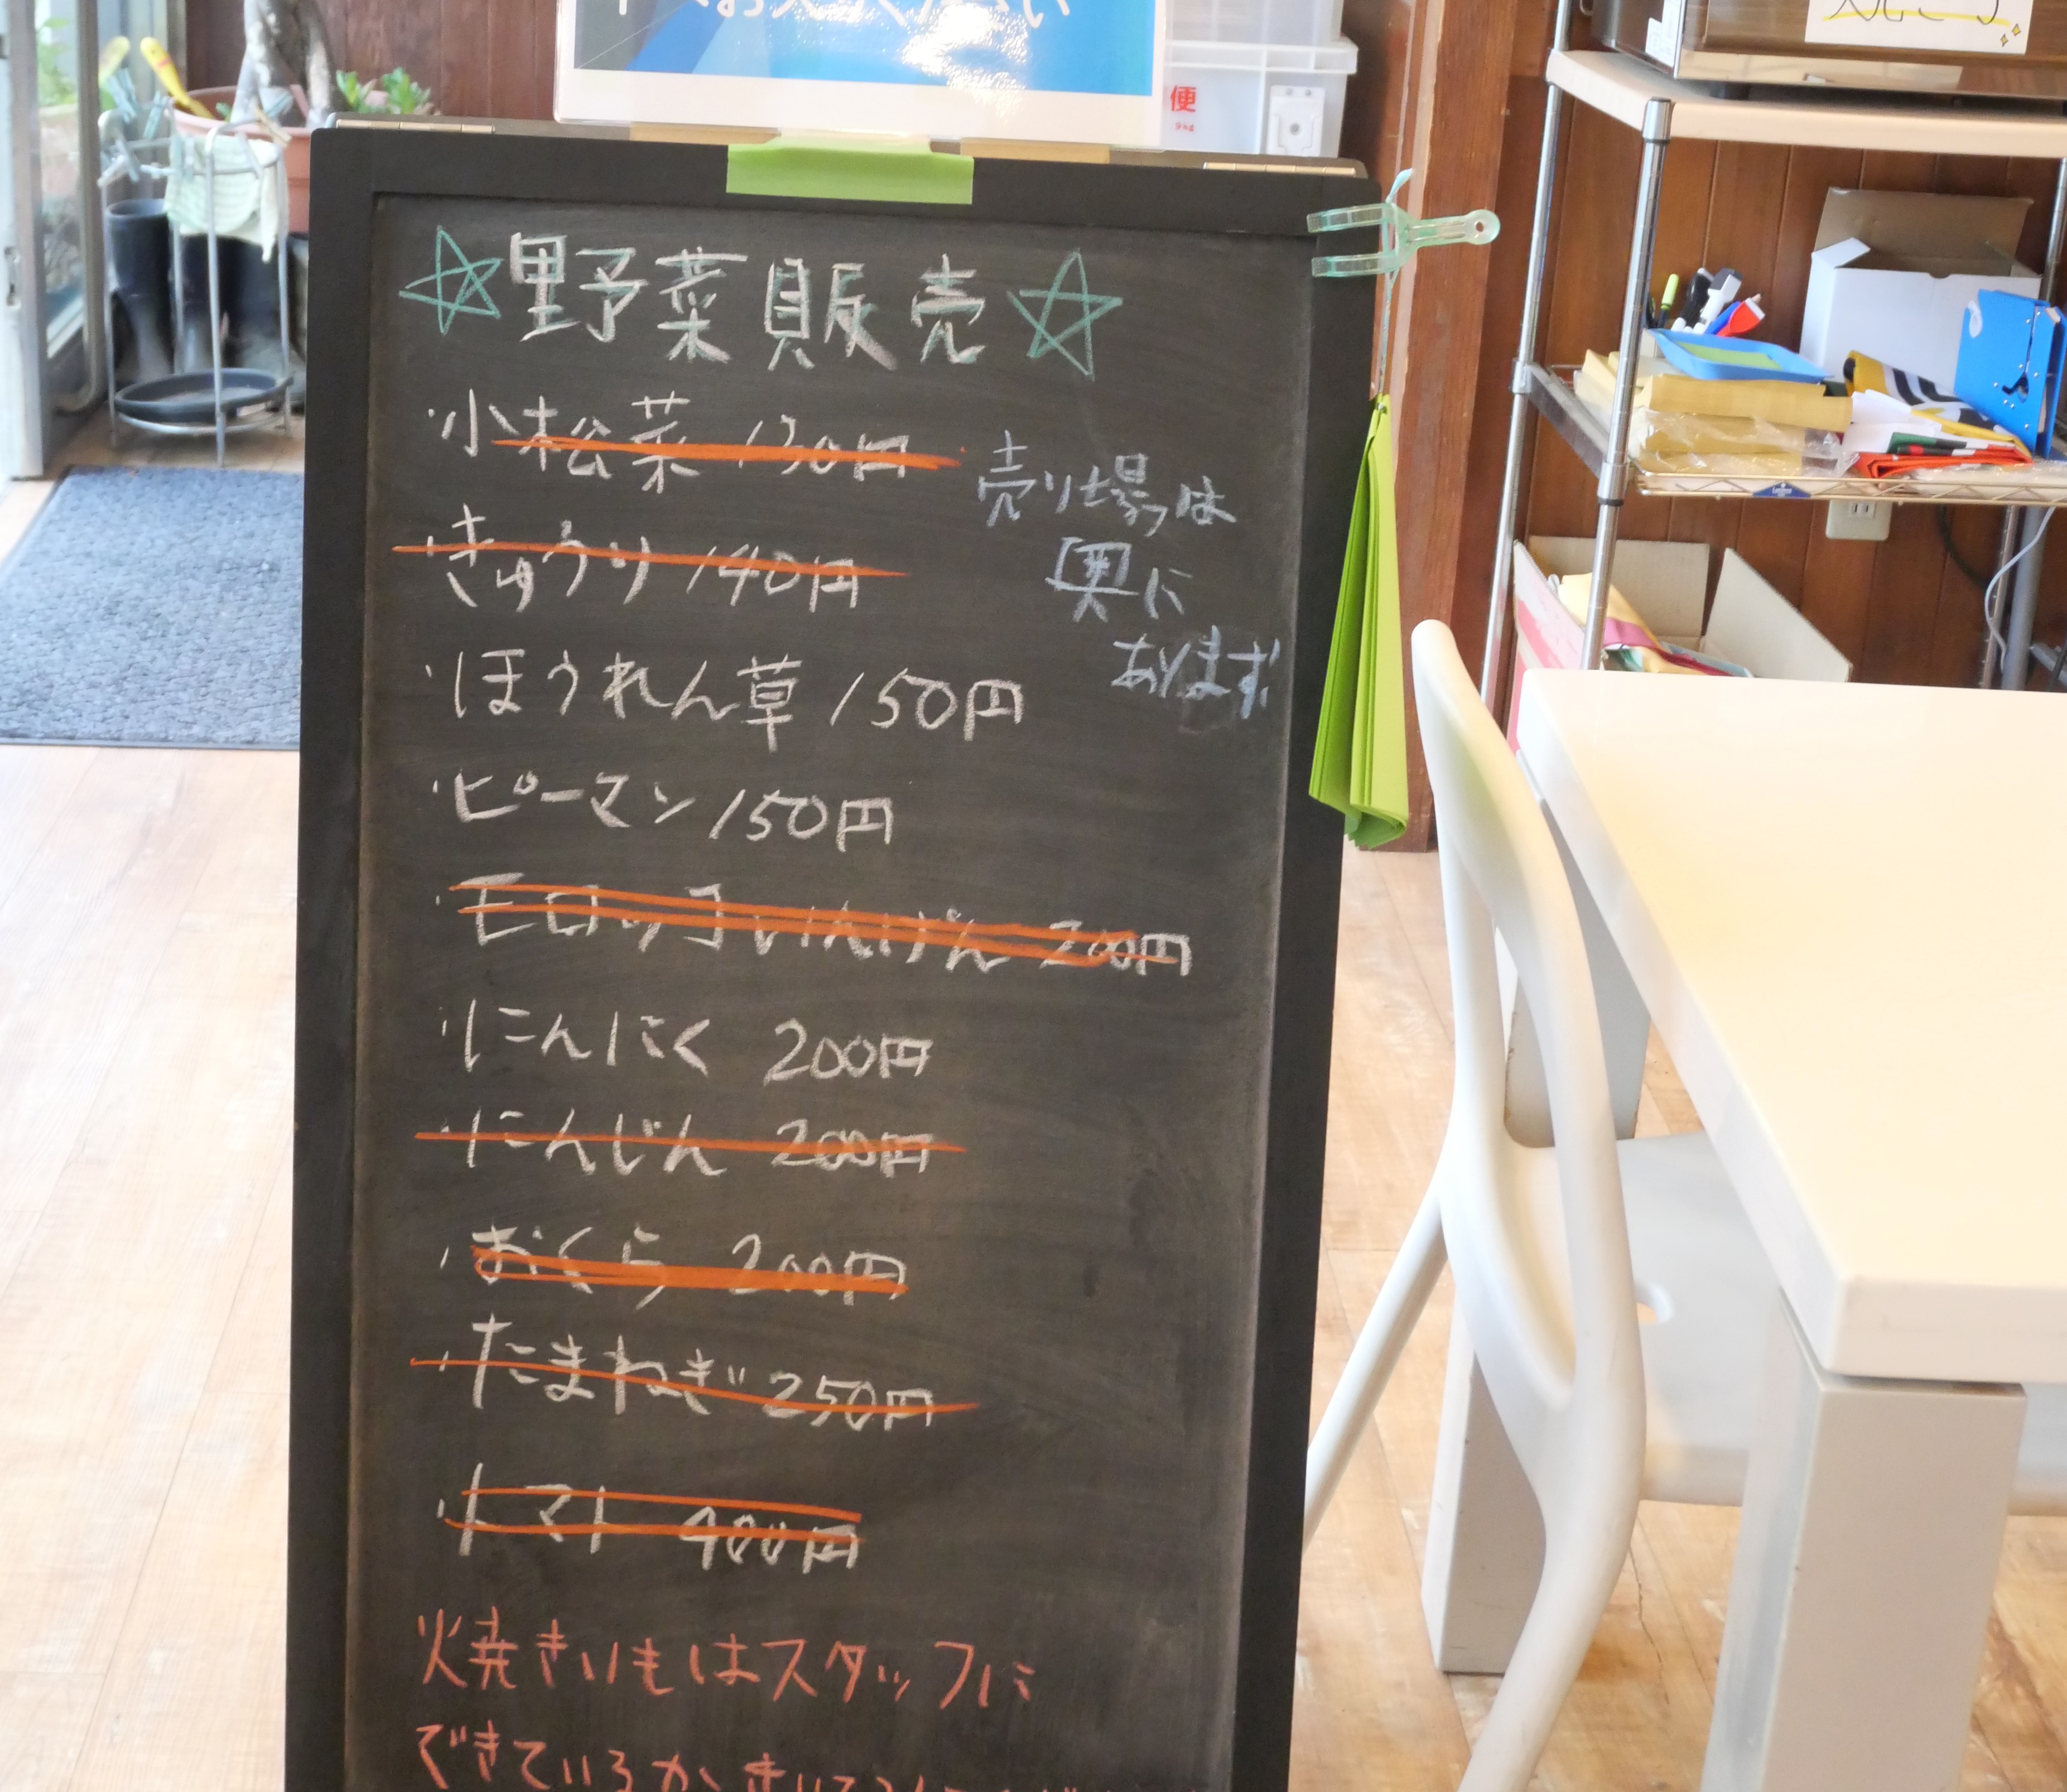 便
☆野菜販売☆
・小松菜 130円
・きゅうり 140円
売り場は
奥に
あります
・ほうれん草 150円
・ピーマン 150円
・モロッコいんげん 200円
・にんにく 200円
・にんじん 200円
・おくら 200円
・たまねぎ 250円
・トマト 400円
焼きいもはスタッフに
できているか